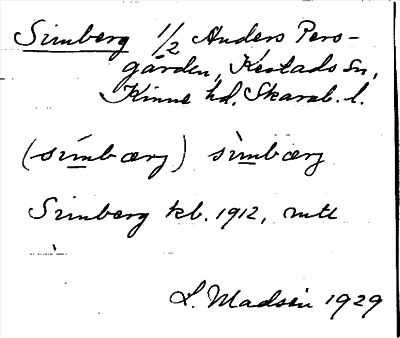 Simberg 1/2 Anders Pers-
gården, Kestads sn,
Kinne hd. Skarab. l.
(símbærg) sìmbærg
Simberg kb. 1912, mtl
L. Madsén 1929